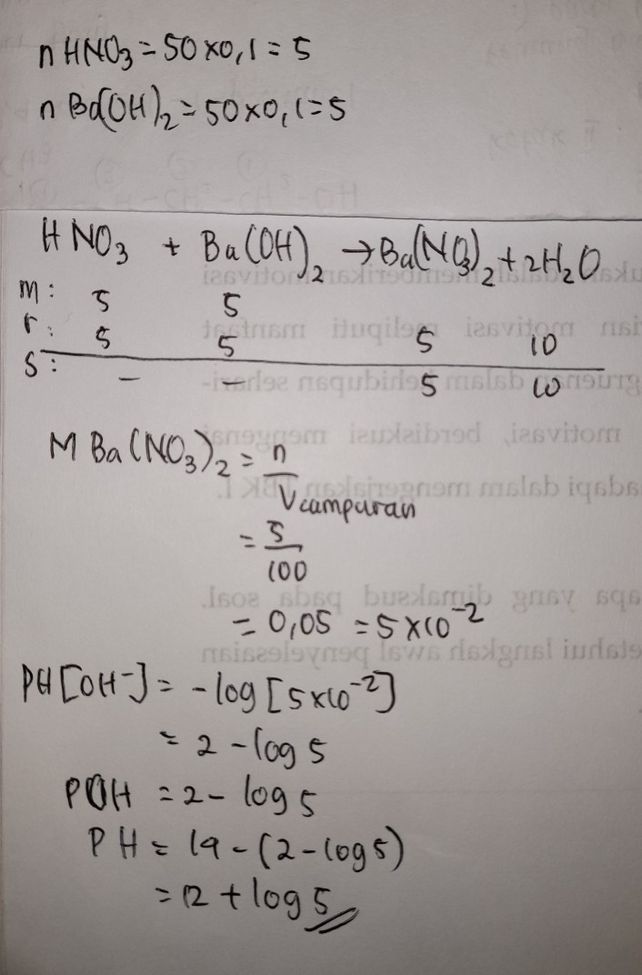 n HNO₃ = 50 x 0,1 = 5
n Ba(OH)₂ = 50 x 0,1 = 5
HNO₃ + Ba(OH)₂ → Ba(NO₃)₂ + 2H₂O
m: 5 5
r: 5 5 5 10
s: - - 5 10
M Ba(NO₃)₂ = n / V campuran
= 5 / 100
= 0,05 = 5 x 10⁻²
PH [OH⁻] = - log [5 x 10⁻²]
= 2 - log 5
POH = 2 - log 5
PH = 14 - (2 - log 5)
= 12 + log 5